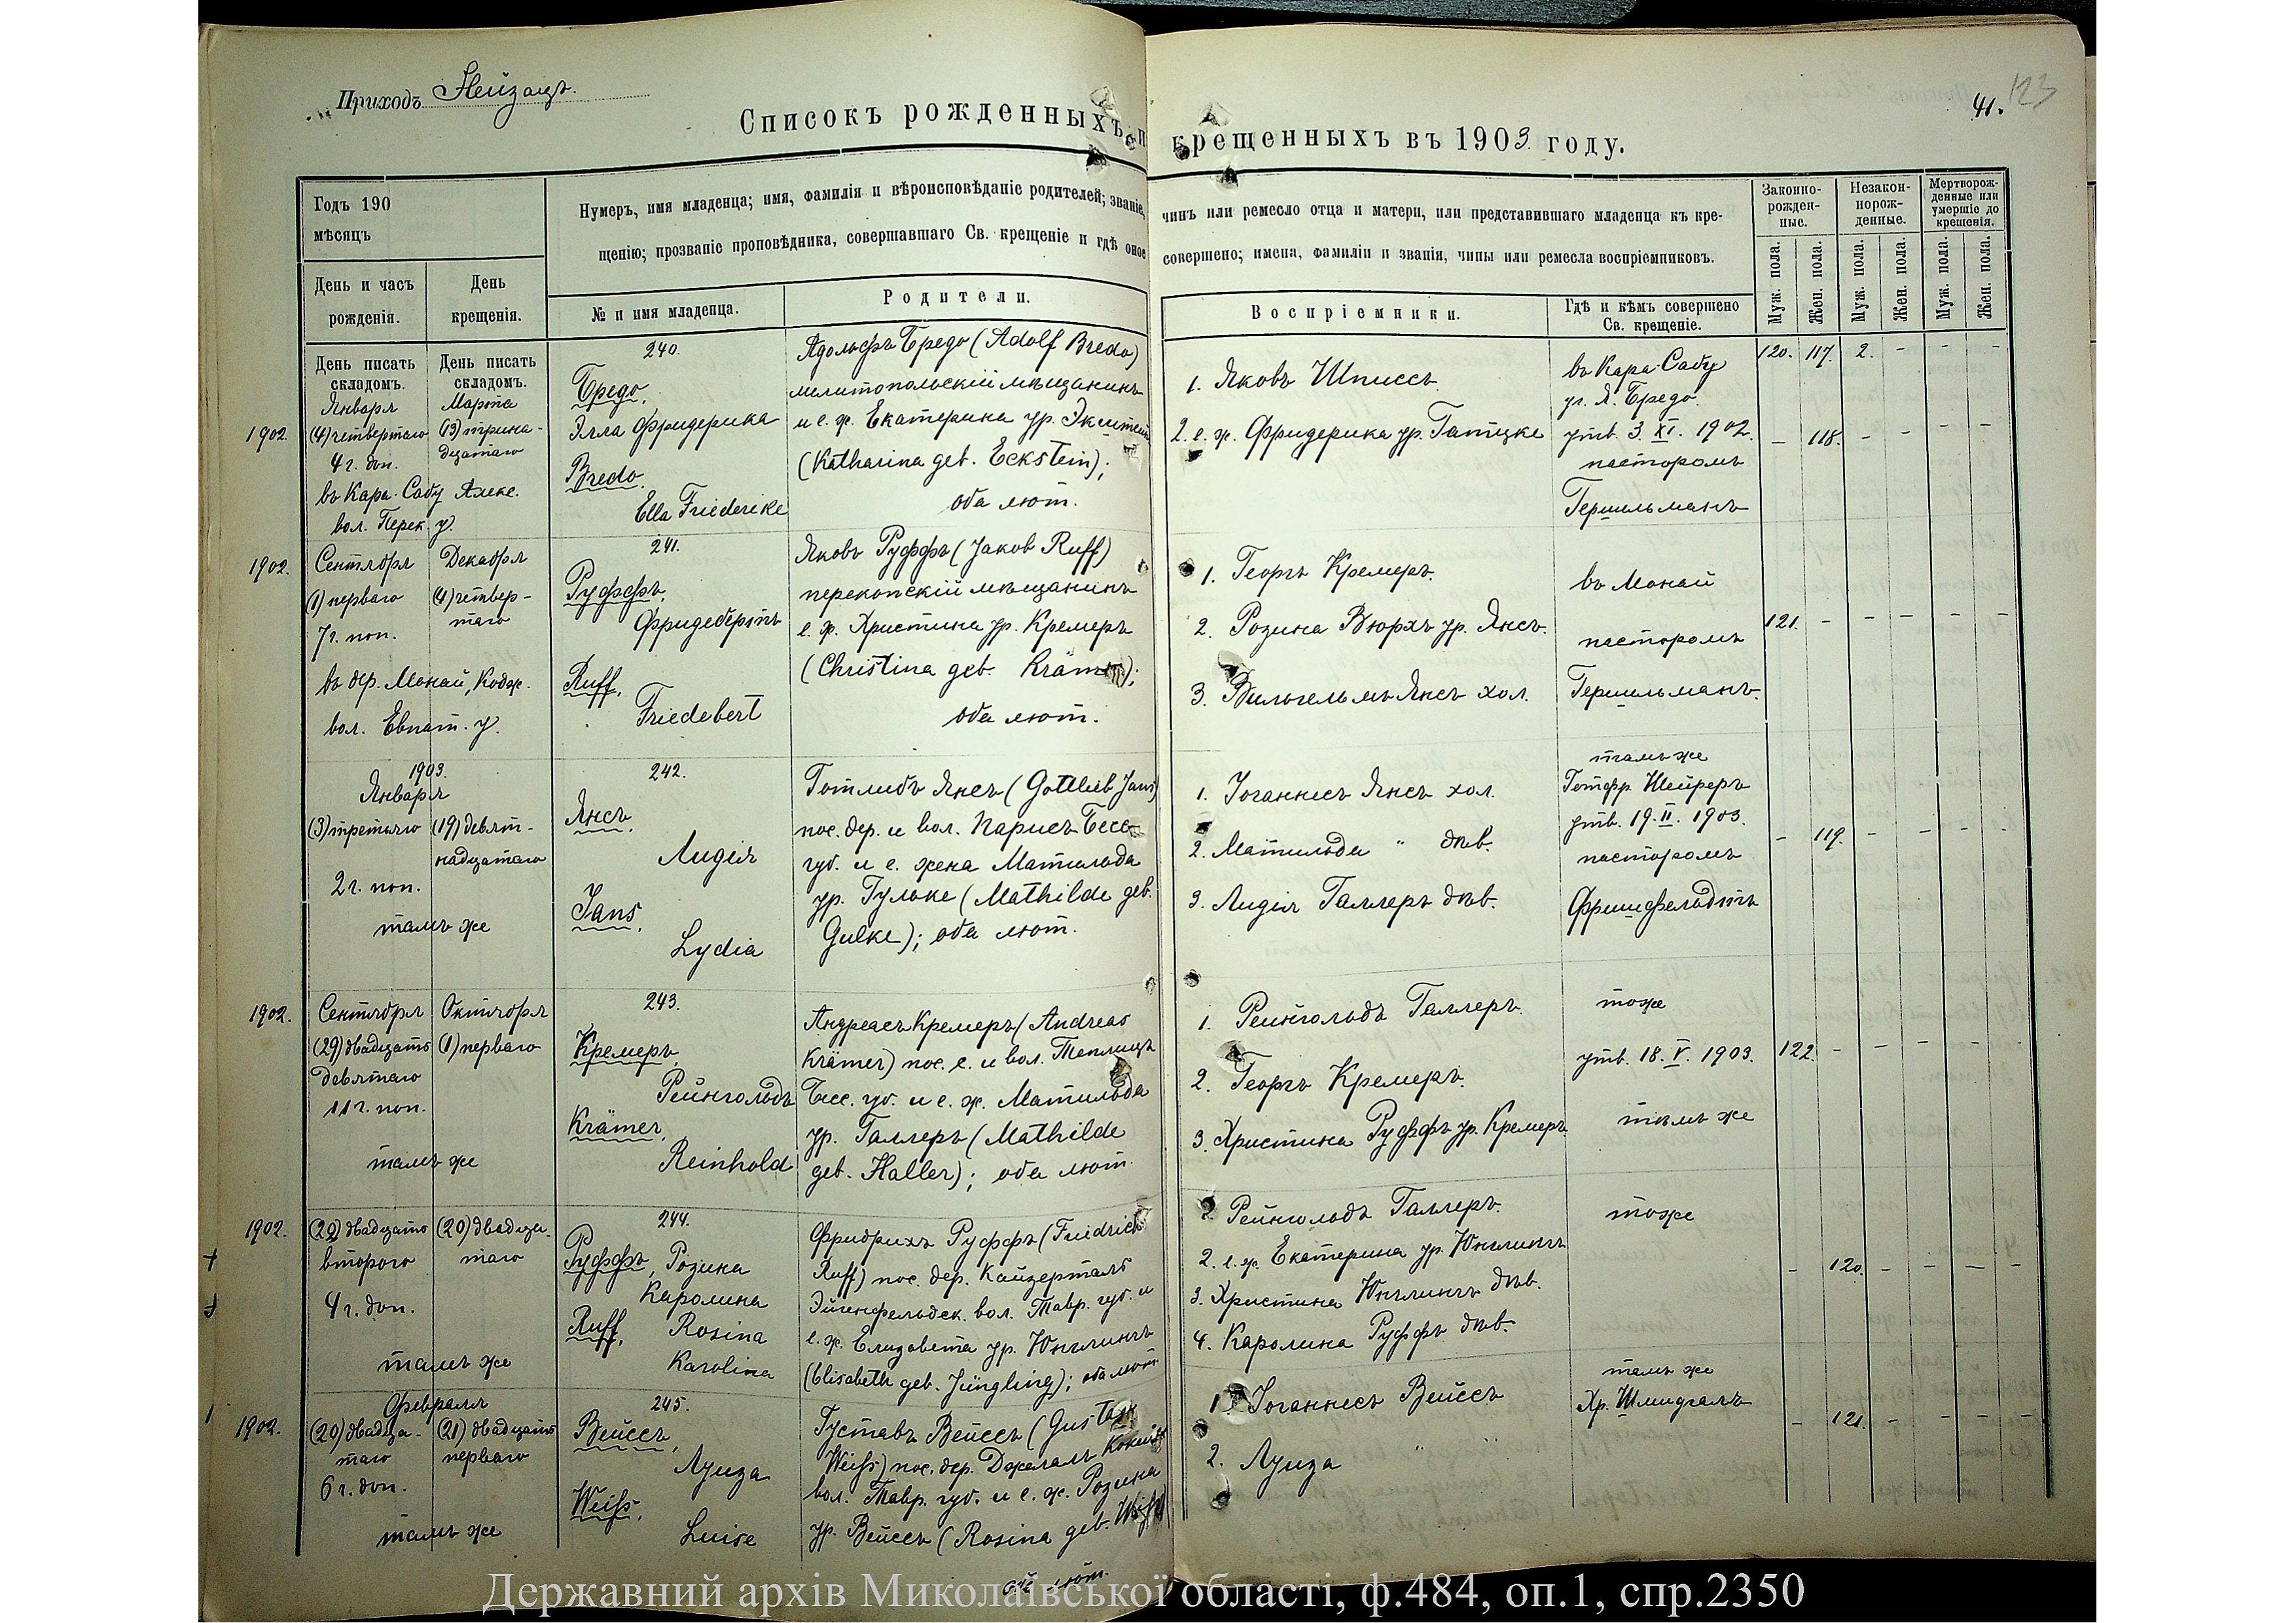 Приходъ Нейзацъ.
41.
123
Списокъ рожденныхъ и крещенныхъ въ 1903 году.
Годъ 190
мѣсяцъ
День и часъ
рожденія.
День
крещенія.
Нумеръ, имя младенца; имя, фамилія и вѣроисповѣданіе родителей; званіе,
щенію; прозваніе проповѣдника, совершавшаго Св. крещеніе и гдѣ оное
№ и имя младенца.
Родители.
чинъ или ремесло отца и матери, или представившаго младенца къ кре-
совершено; имена, фамиліи и званія, чины или ремесла воспріемниковъ.
Воспріемники.
Гдѣ и кѣмъ совершено
Св. крещеніе.
Законно-
рожден-
ные.
Незакон-
норож-
денные.
Мертворож-
денные или
умершіе до
крещенія.
Муж. пола.
Жен. пола.
Муж. пола.
Жен. пола.
Муж. пола.
Жен. пола.
День писать
складомъ.
День писать
складомъ.
1902
Января
(4) четвертаго
4 ч. доп.
въ Кара-Сабу Алекс.
вол. Перек. у.
Марта
(13) трина-
дцатаго
240.
Бредо,
Элла Фридерика
Bredo,
Ella Friederike
Адольфъ Бредо (Adolf Bredo)
мелитопольскій мѣщанинъ
и е. ж. Екатерина ур. Экштейн
(Katharina geb. Eckstein);
оба лют.
1. Яковъ Шписсъ
2. е. ж. Фридерика ур. Гатцке
въ Кара-Сабу
уч. Я. Бредо.
утв. 3. XI. 1902.
пасторомъ
Гершельманъ
120. 117. 2. - - -
- 118. - - - -
1902.
Сентября
(1) перваго
7 ч. поп.
въ дер. Монай, Кодж.
вол. Евпат. у.
Декабря
(4) четвер-
таго
241.
Руффъ,
Фридебертъ
Ruff,
Friedebert
Яковъ Руффъ (Jakob Ruff)
перекопскій мѣщанинъ
е. ж. Христина ур. Кремеръ
(Christina geb. Krämer);
оба лют.
1. Георгъ Кремеръ.
2. Розина Вюрхъ ур. Янсъ.
3. Вильгельмъ Янсъ хол.
въ Монай
пасторомъ
Гершельманъ.
121. - - - - -
1903.
Января
(3) третьяго
2 ч. поп.
тамъ же
(19) девят-
надцатаго
242.
Янсъ,
Лидія
Jans,
Lydia
Готлибъ Янсъ (Gottlieb Jans)
пос. дер. и вол. Парисъ Бесс.
губ. и е. жена Матильда
ур. Гульке (Mathilde geb.
Gulke); оба лют.
1. Іоганнесъ Янсъ хол.
2. Матильда " дѣв.
3. Лидія Галлеръ дѣв.
тамъ же
Готфр. Шейреръ
утв. 19. II. 1903.
пасторомъ
Фришфельдтъ
- 119. - - - -
1902.
Сентября
(29) двадцать
девятаго
11 ч. поп.
тамъ же
Октября
(1) перваго
243.
Кремеръ,
Рейнгольдъ
Krämer,
Reinhold
Андреасъ Кремеръ (Andreas
Krämer) пос. с. и вол. Теплицъ
Бесс. губ. и е. ж. Матильда
ур. Галлеръ (Mathilde
geb. Haller); оба лют.
1. Рейнгольдъ Галлеръ.
2. Георгъ Кремеръ.
3. Христина Руффъ ур. Кремеръ
тоже
утв. 18. V. 1903.
тамъ же
122. - - - - -
1902.
(22) двадцать
второго
4 ч. доп.
тамъ же
(20) двадца-
таго
244.
Руффъ, Розина
Каролина
Ruff, Rosina
Karolina
Фридрихъ Руффъ (Friedrich
Ruff) пос. дер. Кайзерталь
Эйгенфельдск. вол. Тавр. губ. и
е. ж. Елизавета ур. Юнглингъ
(Elisabeth geb. Jüngling); оба лют.
1. Рейнгольдъ Галлеръ.
2. е. ж. Екатерина ур. Юнглингъ
3. Христина Юнглингъ дѣв.
4. Каролина Руффъ дѣв.
тоже
- 120. - - - -
1902.
Февраля
(20) двадца-
таго
6 ч. доп.
тамъ же
(21) двадцать
перваго
245.
Вейссъ,
Луиза
Weiſs,
Luise
Густавъ Вейссъ (Gustav
Weiſs) пос. дер. Джелалъ
вол. Тавр. губ. и е. ж. Розина
ур. Вейссъ (Rosina geb. Weiſs)
оба лют.
1. Іоганнесъ Вейссъ
2. Луиза "
тамъ же
Хр. Шмидгаль
- 121. - - - -
Державний архів Миколаївської області, ф.484, оп.1, спр.2350